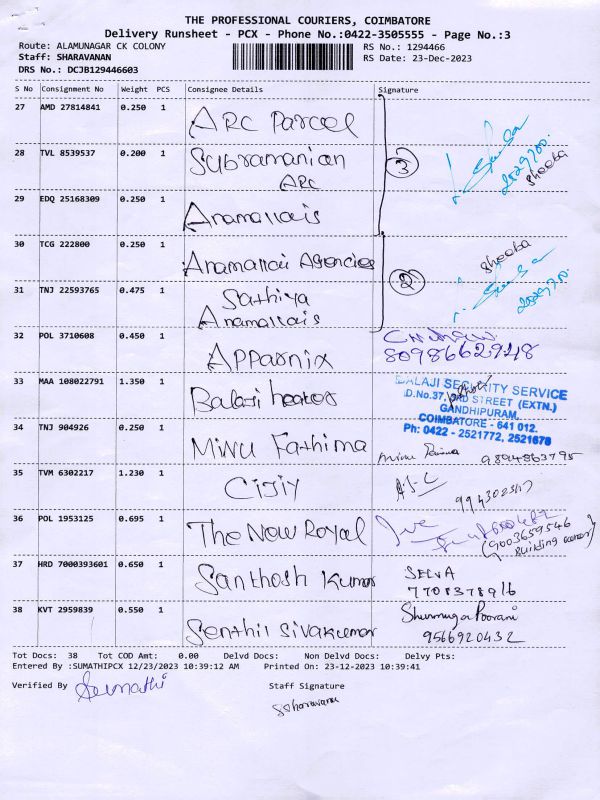 THE PROFESSIONAL COURIERS, COIMBATORE
Delivery Runsheet - PCX - Phone No.:0422-3505555 - Page No.:3
Route: ALAMUNAGAR CK COLONY RS No.: 1294466
Staff: SHARAVANAN RS Date: 23-Dec-2023
DRS No.: DCJB129446603
S No Consignment No Weight PCS Consignee Details Signature
27 AMD 27814841 0.250 1 ARC Parcel
28 TVL 8539537 0.200 1 Subramanian
ARC
3
Sheeba
29 EDQ 25168309 0.250 1 Anamallais
30 TCG 222800 0.250 1 Anamallai Agencies
Sheeba
2
31 TNJ 22593765 0.475 1 Sathiya
Anamallais
32 POL 3710608 0.450 1 Apparnix
8098662948
33 MAA 108022791 1.350 1 Balaji heates
BALAJI SECURITY SERVICE
D.No.37, 3RD STREET (EXTN.)
GANDHIPURAM,
COIMBATORE - 641 012.
Ph: 0422 - 2521772, 2521678
34 TNJ 904926 0.250 1 Minu Fathima
9894863795
35 TVM 6302217 1.230 1 CIJIY
36 POL 1953125 0.695 1 The New Royal
(9003659546
Building owner)
37 HRD 7000393601 0.650 1 Santhosh Kumar SELVA
7708378916
38 KVT 2959839 0.550 1 Senthil Sivakumar Shunmuga Poorani
9566920432
Tot Docs: 38 Tot COD Amt: 0.00 Delvd Docs: Non Delvd Docs: Delvy Pts:
Entered By :SUMATHIPCX 12/23/2023 10:39:12 AM Printed On: 23-12-2023 10:39:41
Verified By Sumathi Staff Signature
Saharavana